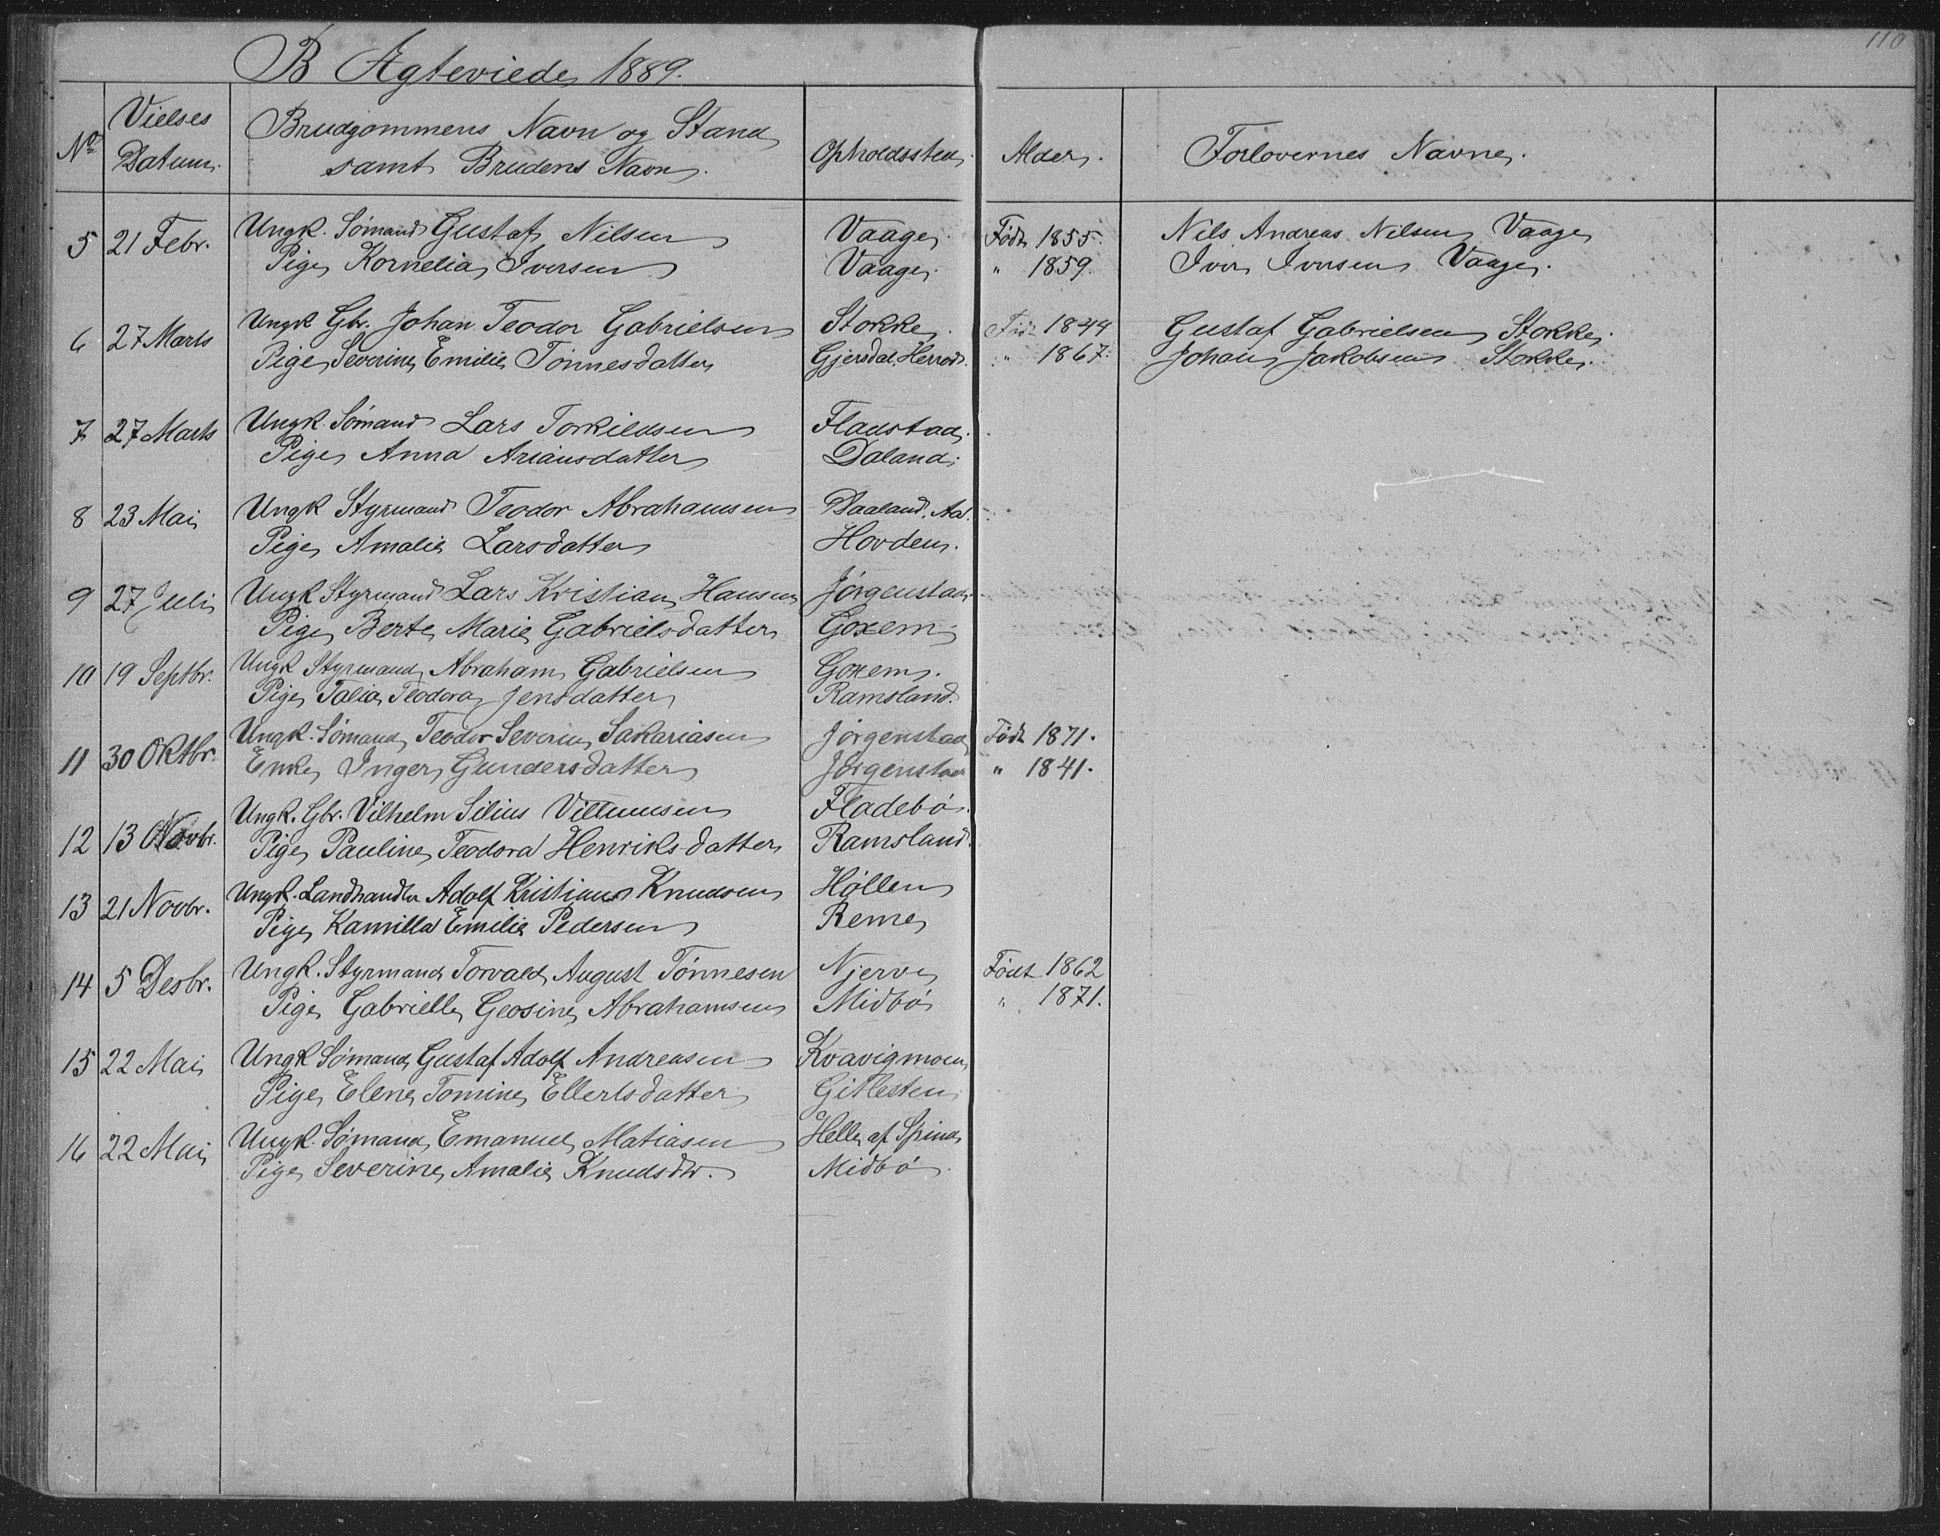 110
B Ægteviede 1889.
No Vielses Datum. Brudgommens Navn og Stand samt Brudens Navn. Opholdssted. Alder. Forlovernes Navne.
5 21 Febr. Ungk. Sømand Gustaf Nilsen Vaage. Født 1855. Nils Andreas Nilsen Vaage
Pige Kornelia Iversen Vaage. " 1859. Iver Iversen Vaage.
6 27 Marts Ungk Gbr. Johan Teodor Gabrielsen Stokke. Født 1844 Gustaf Gabrielsen Stokke.
Pige Severine Emilie Tønnesdatter Gjersdal Herred. " 1867. Johan Jakobsen Stokke.
7 27 Marts Ungk. Sømand Lars Torkildsen Fladstad.
Pige Anna Ariansdatter Daland.
8 23 Mai Ungk Styrmand Teodor Abrahamsen Daaland. Aa.
Pige Amalie Larsdatter Hovden.
9 27 Juli Ungk Styrmand Lars Kristian Hansen Jørgenstad.
Pige Berte Marie Gabrielsdatter Goxem
10 19 Septbr. Ungk Styrmand Abraham Gabrielsen Goxem.
Pige Talia Teodora Jensdatter Ramsland.
11 30 Oktbr. Ungk. Sømand Teodor Severin Sakariasen Jørgenstad Født 1871.
Enke Inger Gundersdatter Jørgenstad " 1841.
12 13 Novbr. Ungk. Gbr. Vilhelm Silius Villumsen Fladebø.
Pige Pauline Teodora Henriksdatter Ramsland.
13 21 Novbr. Ungk. Landhandler Adolf Kristian Knudsen Høllen
Pige Kamilla Emilie Pedersen Reme
14 5 Desbr. Ungk. Styrmand Torvald August Tønnesen Njerve Født 1862
Pige Gabrielle Geosine Abrahamsen Midbø " 1871.
15 22 Mai Ungk Sømand Gustaf Adolf Andreasen Kvavigmoen
Pige Elene Tomine Ellertsdatter Gitlesten
16 22 Mai Ungk. Sømand Emanuel Matiasen Helle af Spind
Pige Severine Amalie Knudsdtr. Midbø.